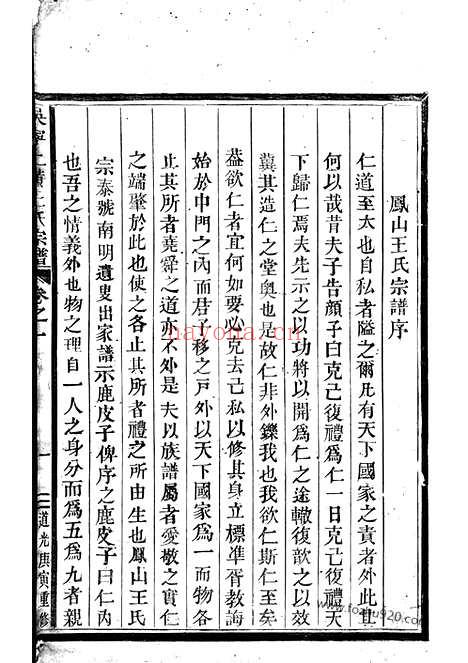 鳳山王氏宗譜序
仁道至大也自私者隘之爾凡有天下國家之責者外此其
何以哉昔夫子告顏子曰克己復禮爲仁一日克己復禮天
下歸仁焉夫先示之以功將以開爲仁之途轍復歆之以效
冀其造仁之堂奧也是故仁非外鑠我也我欲仁斯仁至矣
葢欲仁者宜何如要必克去己私以修其身立標準胥教誨
始於中門之內而君子移之戸外以天下國家爲一而物各
止其所者堯舜之道亦不外是夫以族譜屬者愛敬之實仁
之端肇於此也使之各止其所者禮之所由生也鳳山王氏
宗泰號南明遺叟出家譜示鹿皮子俾序之鹿皮子曰仁內
也吾之情義外也物之理自一人之身分而爲五爲九者親
吳寧上墳王氏宗譜 卷之一 一 道光庚寅重修
nayona.cn
www.fozhu920.com